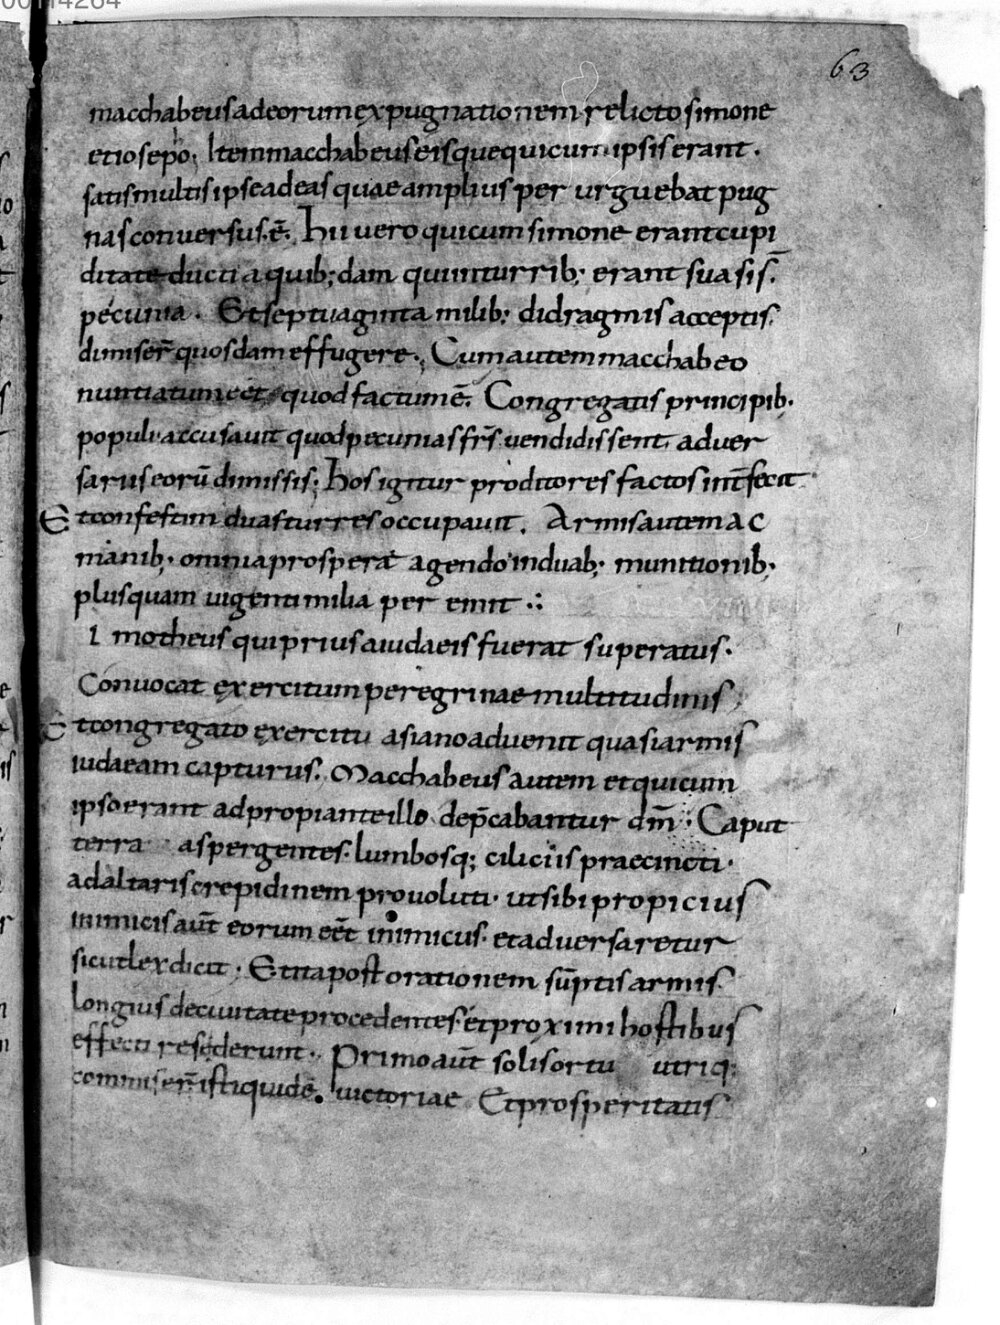 00114264
63
macchabeus ad eorum expugnationem relicto simone
et iosepo; Item macchabeus eisque qui cum ipsis erant.
satis multis ipse ad eas quae amplius per urguebat pug
nas conversus.ē. Hii vero qui cum simone erant cupi
ditate ducti a quib; dam qui in turrib; erant suasis.
pecunia. Et septuaginta milib; didragmis acceptis.
dimiser̄ quosdam effugere. Cum autem macchabeo
nuntiatum eēt quod factum ē. Congregatis principib.
populi accusavit quod pecunia sfr̄s vendidissent adver
sariis eorū dimissis. Hos igitur proditores factos int̄fecit
Et confestim duas turres occupavit. Armis autem ac
manib; omnia prospera agendo in duab; munitionib;
plus quam viginti milia per emit
I motheus qui prius a iudaeis fuerat superatus.
Convocat exercitum peregrinae multitudinis
Et congregato exercitu asiano advenit quasi armis
iudaeam capturus. Macchabeus autem et qui cum
ipso erant adpropiante illo dep̄cabantur dm̄. Caput
terra aspergentes. lumbosq; ciliciis praecincti.
ad altaris crepidinem provoluti. ut sibi propicius
inimicis aūt eorum eēt inimicus. et adversaretur
sicut lex dicit. Et ita post orationem sūptis armis.
longius de civitate procedentes. et proximi hostibus
effecti resederunt. Primo aūt solis ortu utriq;
commiser̄ isti quidē. victoriae Et prosperitatis